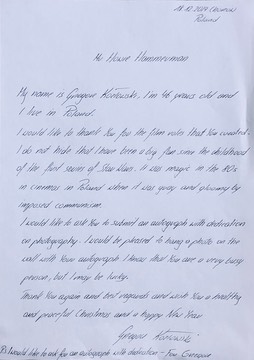 18.12.2019
Poland
Mr Howe Hammerman
My name is Gregor . I'm 46 years old and
I live in Poland.
I would like to thank You for the film roles that You created.
I do not hide that I have been a big fan since the childhood
of the first series of Star Wars. It was magic in the 80s
in cinemas in Poland when it was gray and gloomy by
imposed communism.
I would like to ask You to submit an autograph with dedication
on photography. I would be pleased to hang a photo on the
wall with Your autograph. I know that You are a very busy
person, but I may be lucky.
Thank You again and best regards and wish You a healthy
and peaceful Christmas and a happy New Year.
Gregor
PS. I would like to ask for an autograph with dedication - For Gregor